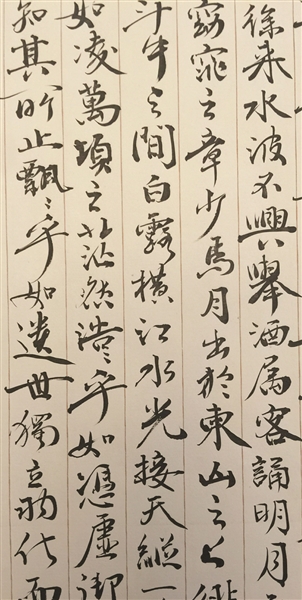 徐来水波不興舉酒属客誦明月
窈窕之章少焉月出於東山之上徘
斗牛之間白露横江水光接天縱一
如凌萬頃之茫然浩〻乎如憑虛御
知其所止飄〻乎如遺世獨立羽化而